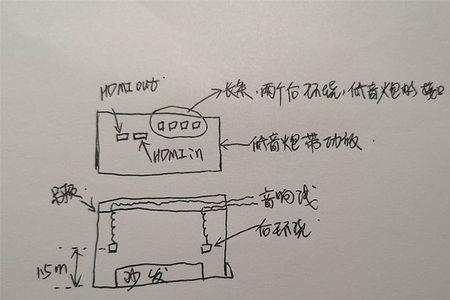 HDMI out
长条，两个后环绕，低音炮的接口
HDMI in
低音炮带功放
吊顶
音响线
后环绕
1.5m
沙发